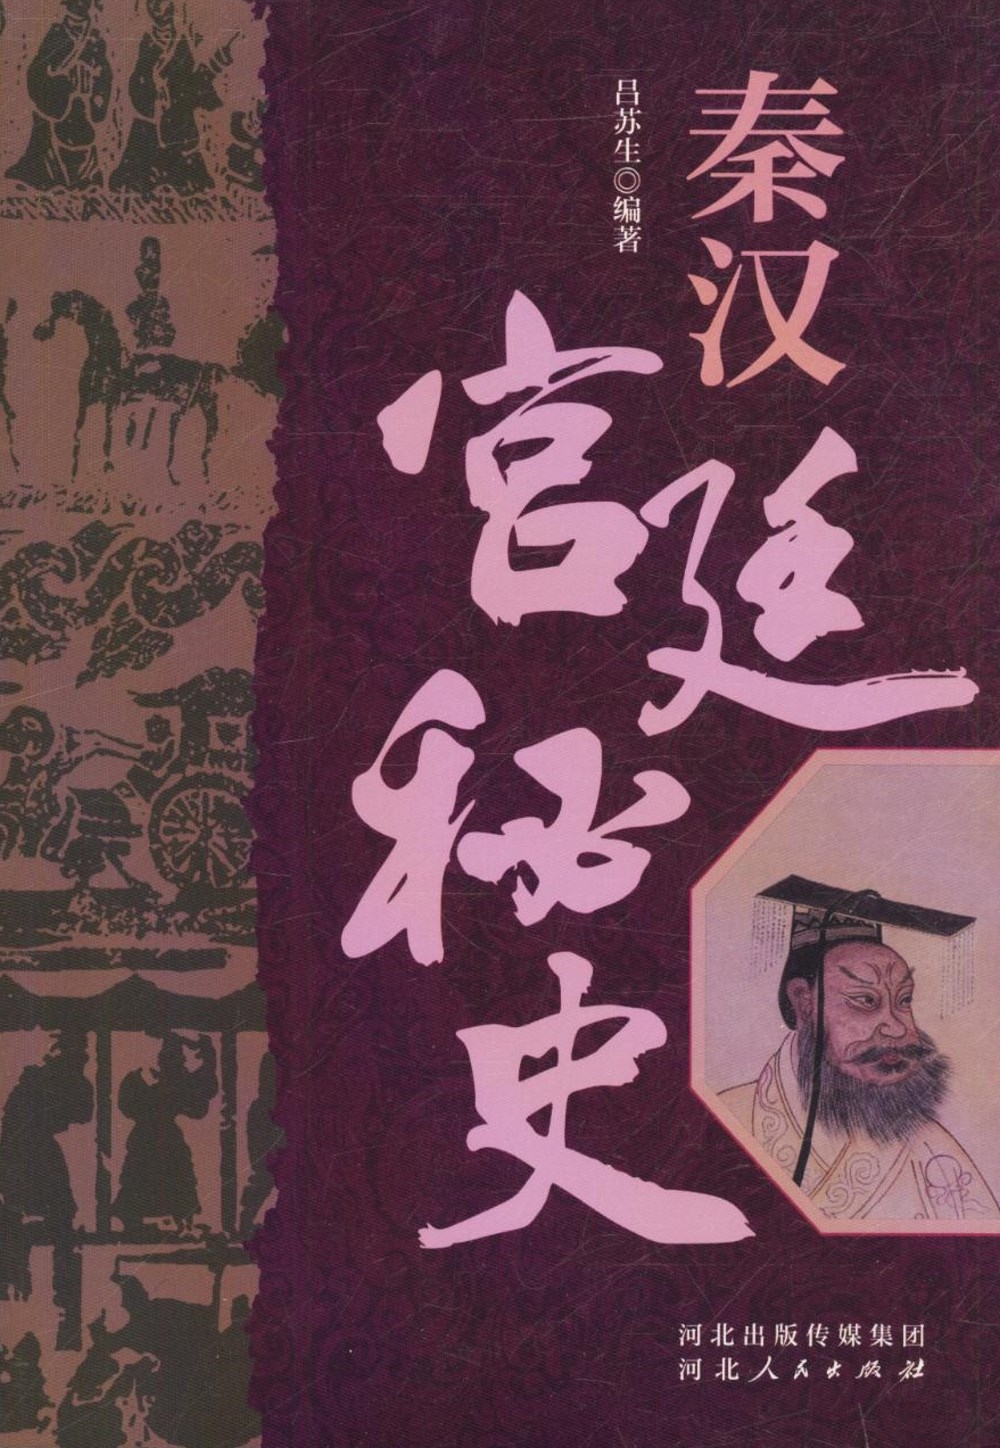 秦汉
宫廷
秘史
吕苏生◎编著
河北出版传媒集团
河北人民出版社